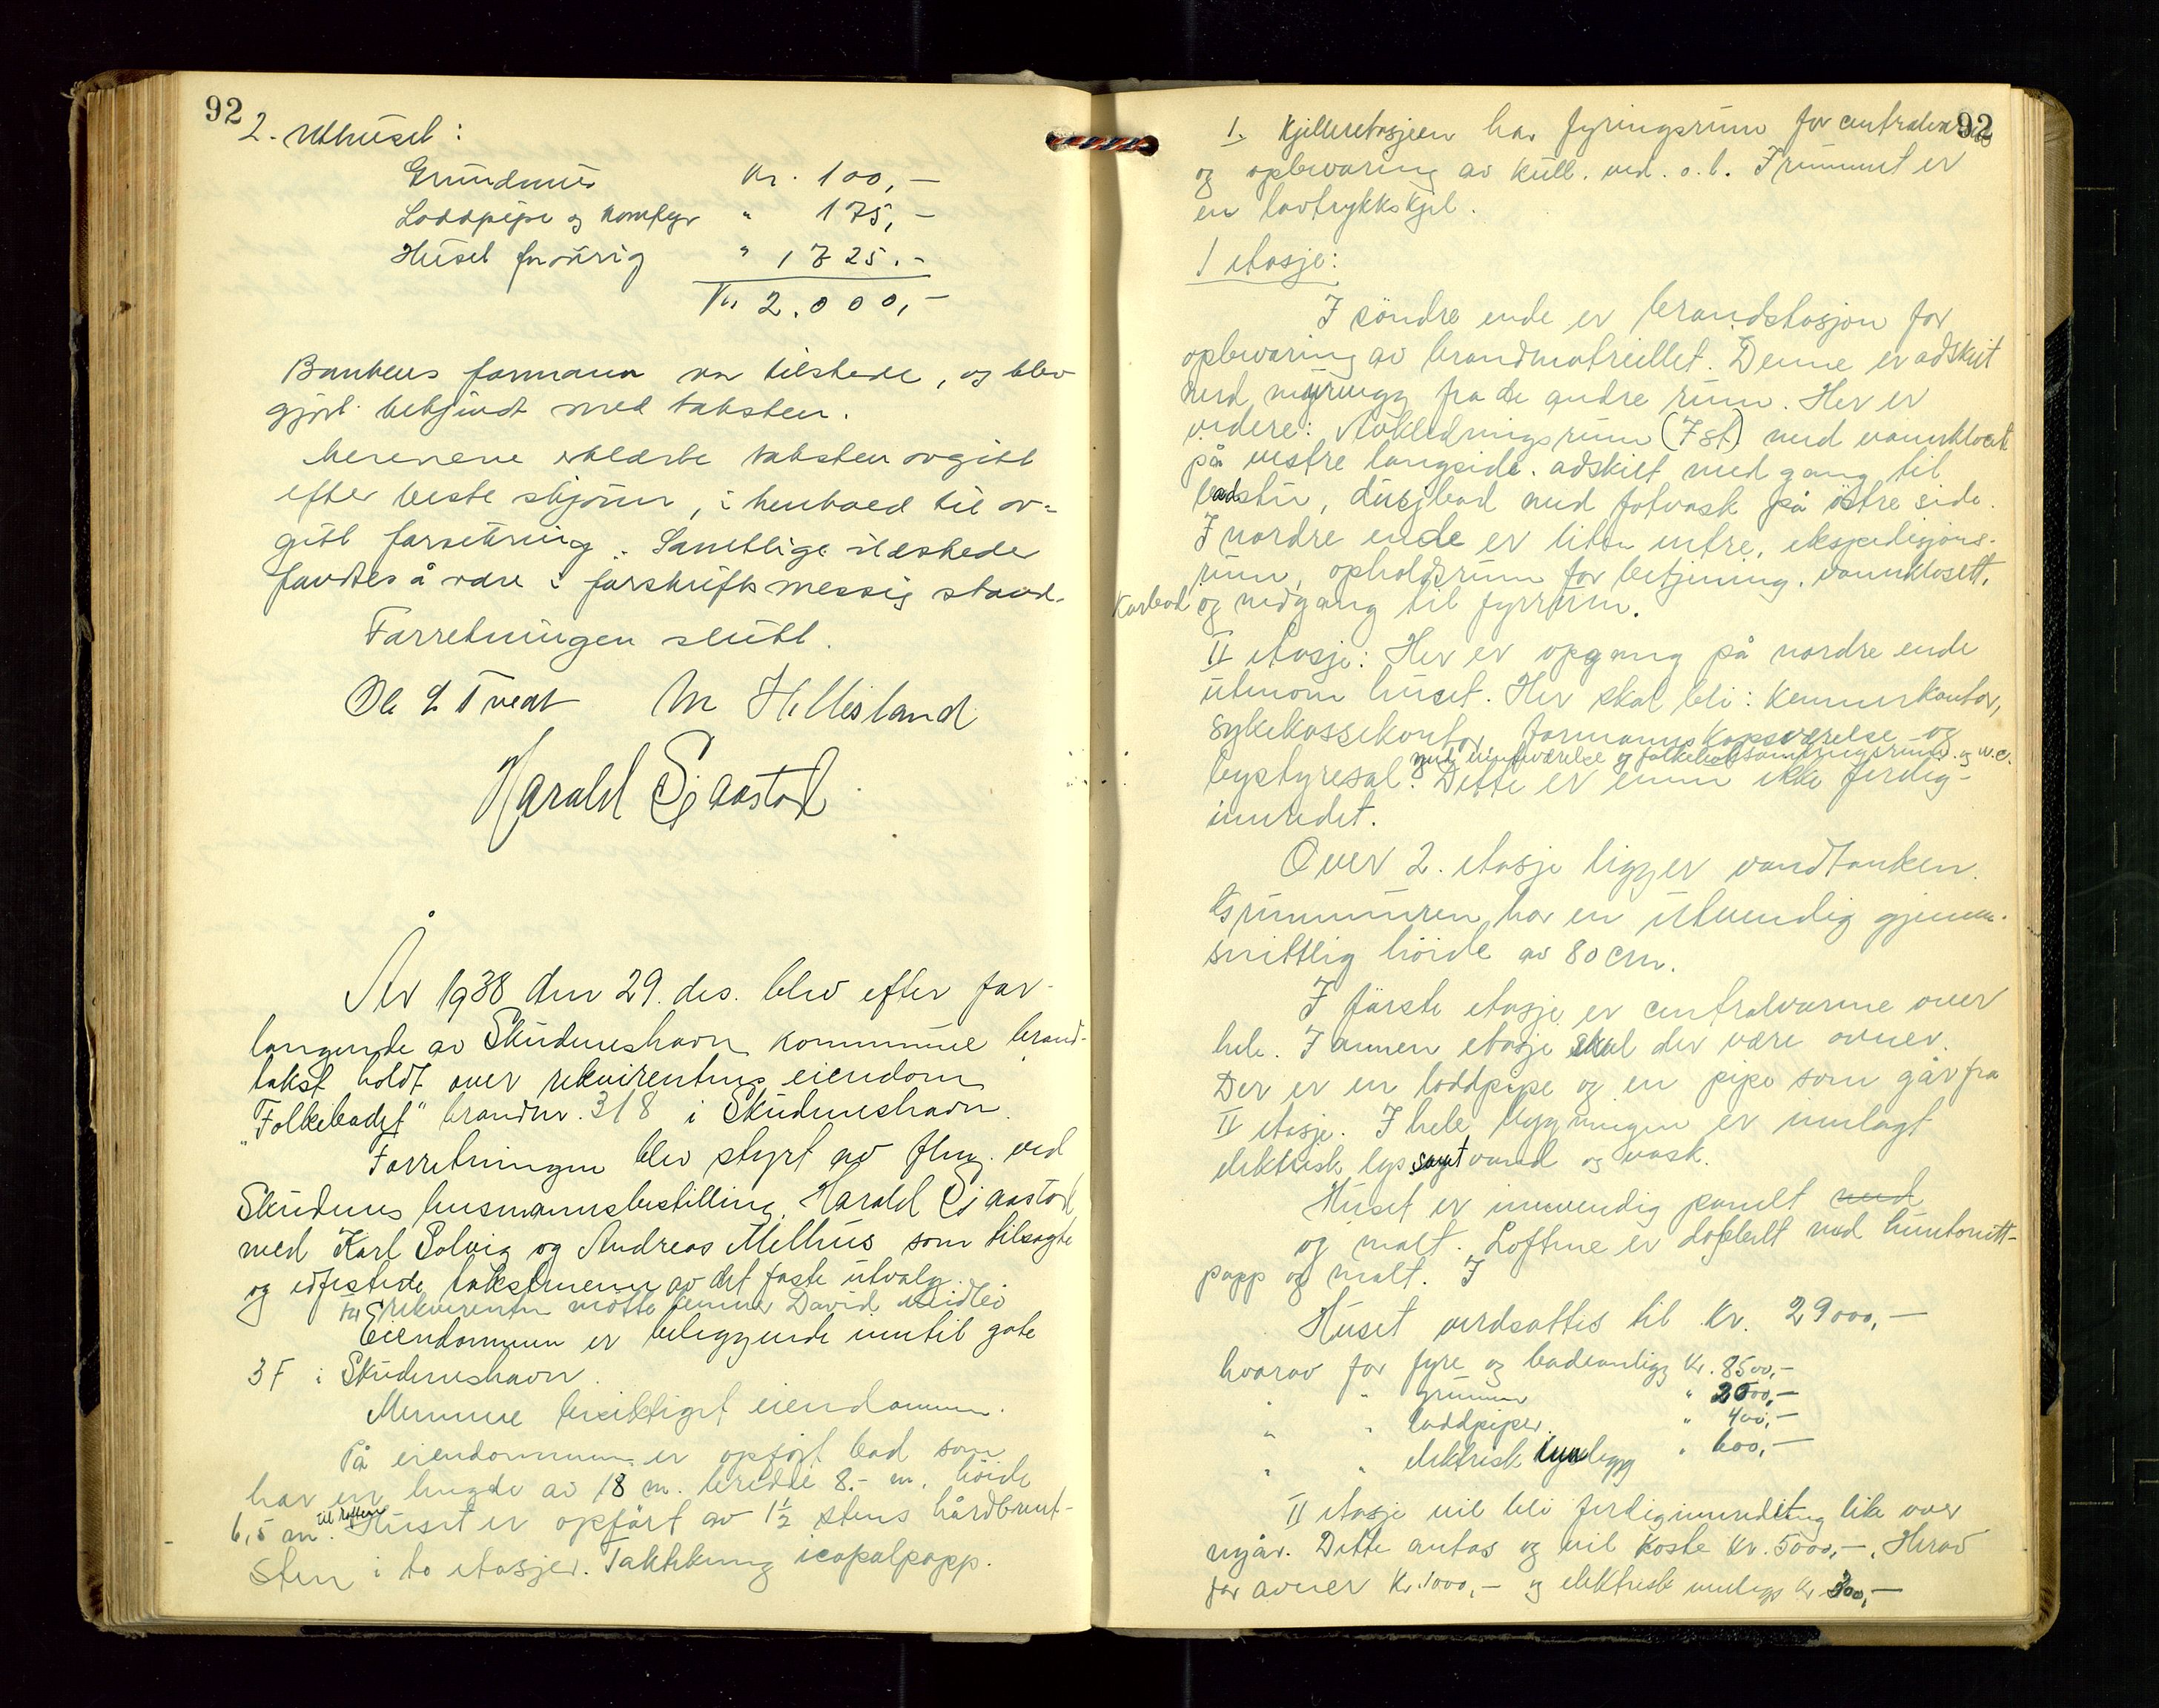 92
2. Uthuset:
Grundmur Kr. 100,-
Loddpipe og komfyr " 175,-
Huset forövrig " 1725.-
Kr 2.000,-
Bankens formann var tilstede, og blev
gjort bekjendt med taksten.
Mennene erklærte taksten avgitt
efter beste skjönn, i henhold til av-
gitt forsikring. Samtlige ildsteder
fandtes å være i forskriftsmessig stand.
Forretningen slutt.
Ole L Tvedt M Hillesland
Harald Sjaastad
År 1938 den 29. des. blev efter for-
langende av Skudeneshavn kommune brand-
takst holdt over rekvirentens eiendom
"Folkebadet" brandnr. 318 i Skudeneshavn.
Forretningen blev styrt av flm. ved
Skudenes lensmannsbestilling, Harald Sjaastad
med Karl Solvig og Andreas Melhus som tilsagte
og edfestede takstmenn av det faste utvalg.
For rekvirenten møtte kemner David Meidlei
Eiendommen er beliggende inntil gate
3F i Skudeneshavn.
Mennene besiktiget eiendommen.
På eiendommen er opført bad som
har en lengde av 18 m. bredde 8.- m. höide
6,5 m. til raften Huset er opfört av 1½ stens hårdbrent-
sten i to etasjer. Taktekning icopalpapp.
92
I. Kjelleretasjeen har fyringsrum for centralvarme
og opbevaring av kull. ved. o.l. I rummet er
en lavtrykkskjel.
I etasje:
I söndre ende er brandstasjon for
opbevaring av brandmatriellet. Denne er adskilt
med murvegg fra de andre rum. Her er
videre: Avkledningsrum (7 st) med vannklosett
på vestre langside. adskilt med gang til
badstu, dusjbad med fotvask på östre side.
I nordre ende er liten entre, ekspedisjons-
rum, opholdsrum for betjening, vannklosett,
Karbad og nedgang til fyrrum.
II etasje: Her er opgang på nordre ende
utenom huset. Her skal bli: Kemnerkontor,
sykekassekontor, formannskapsværelse og
med venteværelse og folkeboksamlingsrum. og w.c.
bystyresal. Dette er ennu ikke ferdig-
innredet.
Over 2. etasje ligger vandtanken.
Grunnmuren har en utvendig gjennem-
snittlig höide av 80 cm.
I förste etasje er centralvarme over
hele. I annen etasje skal der være ovner.
Der er en loddpipe og en pipe som går fra
II etasje. I hele bygningen er innlagt
elektrisk lys samt vand og vask.
Huset er innvendig panelt med
og malt. Loftene er dobbelt med huntonitt-
papp og malt. I
Huset verdsattes til Kr. 29000,-
hvorav for fyre og badeanlegg Kr. 8500,-
" " grunnm " 2500,-
" " loddpiper. " 400,-
" " elektrisk innlegg " 600,-
II etasje vil bli ferdiginnredning like over
nyår. Dette antas og vil koste Kr. 5000,-. Herav
for ovner Kr. 1000,- og elektrisk innlegg Kr 300,-